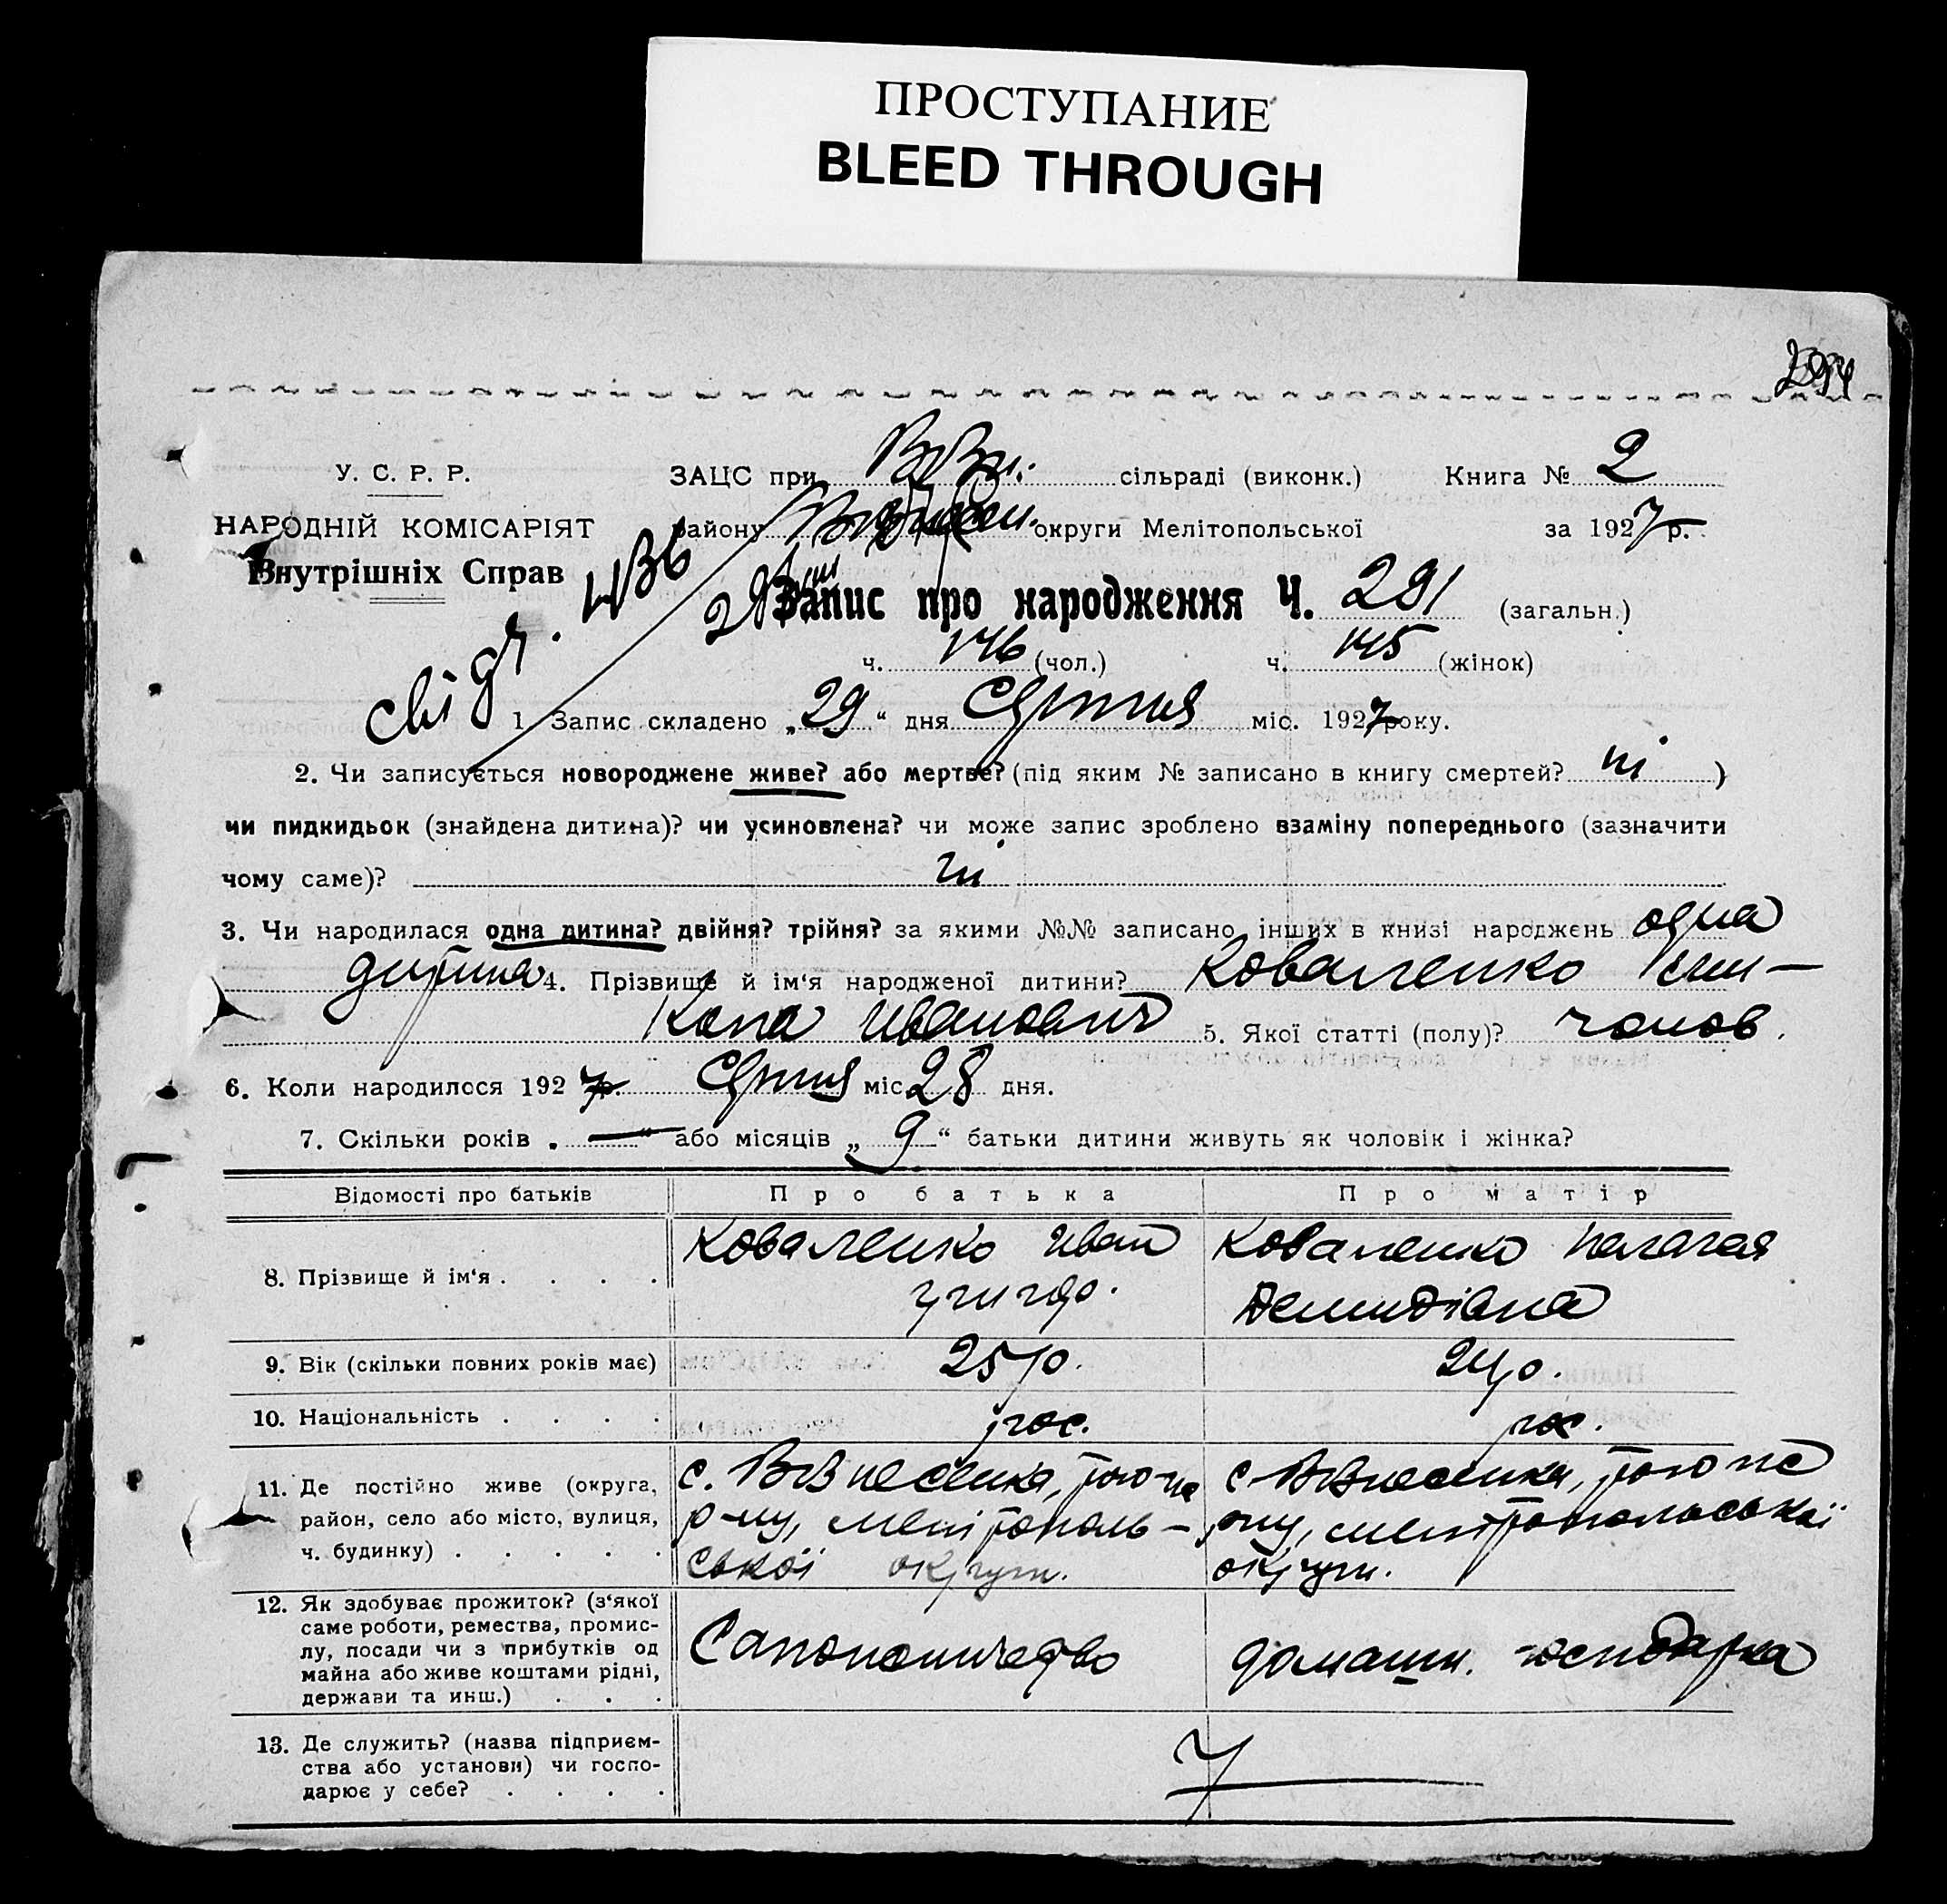 ПРОСТУПАНИЕ
BLEED THROUGH
У. С. Р. Р. ЗАЦС при сільраді (виконк.) Книга № 2
НАРОДНІЙ КОМІСАРІЯТ району округи Мелітопольської за 1927 р.
Внутрішніх Справ
Запис про народження Ч. 291 (загальн.)
свід. 436
ч. 146 (чол.) ч. 145 (жінок)
1. Запис складено „29“ дня Серпня міс. 1927 року.
2. Чи записується новороджене живе? або мертве? (під яким № записано в книгу смертей? ні )
чи пидкидьок (знайдена дитина)? чи усиновлена? чи може запис зроблено взаміну попереднього (зазначити
чому саме)? ні
3. Чи народилася одна дитина? двійня? трійня? за якими №№ записано інших в книзі народжень одна
дитина 4. Прізвище й ім‘я народженої дитини? Коваленко
Иванович 5. Якої статті (полу)? чолов.
6. Коли народилося 1927 р. Серпня міс. 28 дня.
7. Скільки років „—“ або місяців „9“ батьки дитини живуть як чоловік і жінка?
Відомості про батьків Про батька Про матір
8. Прізвище й ім‘я . . . . Коваленко Иван Коваленко Пелагея
Григор. Демидівна
9. Вік (скільки повних років має) 25 р. 24 р.
10. Національність . . . . рос. рос.
11. Де постійно живе (округа, с. Вознесенка, того-же с. Вознесенка, того же
район, село або місто, вулиця, р-ну, мелітополь- р-ну, мелітопольської
ч. будинку) . . . . . ської округи. округи.
12. Як здобуває прожиток? (з‘якої
саме роботи, ремества, промис-
лу, посади чи з прибутків од
майна або живе коштами рідні,
держави та инш.) . . . домашн. господарка
13. Де служить? (назва підприєм-
ства або установи) чи госпо-
дарює у себе? . . . .